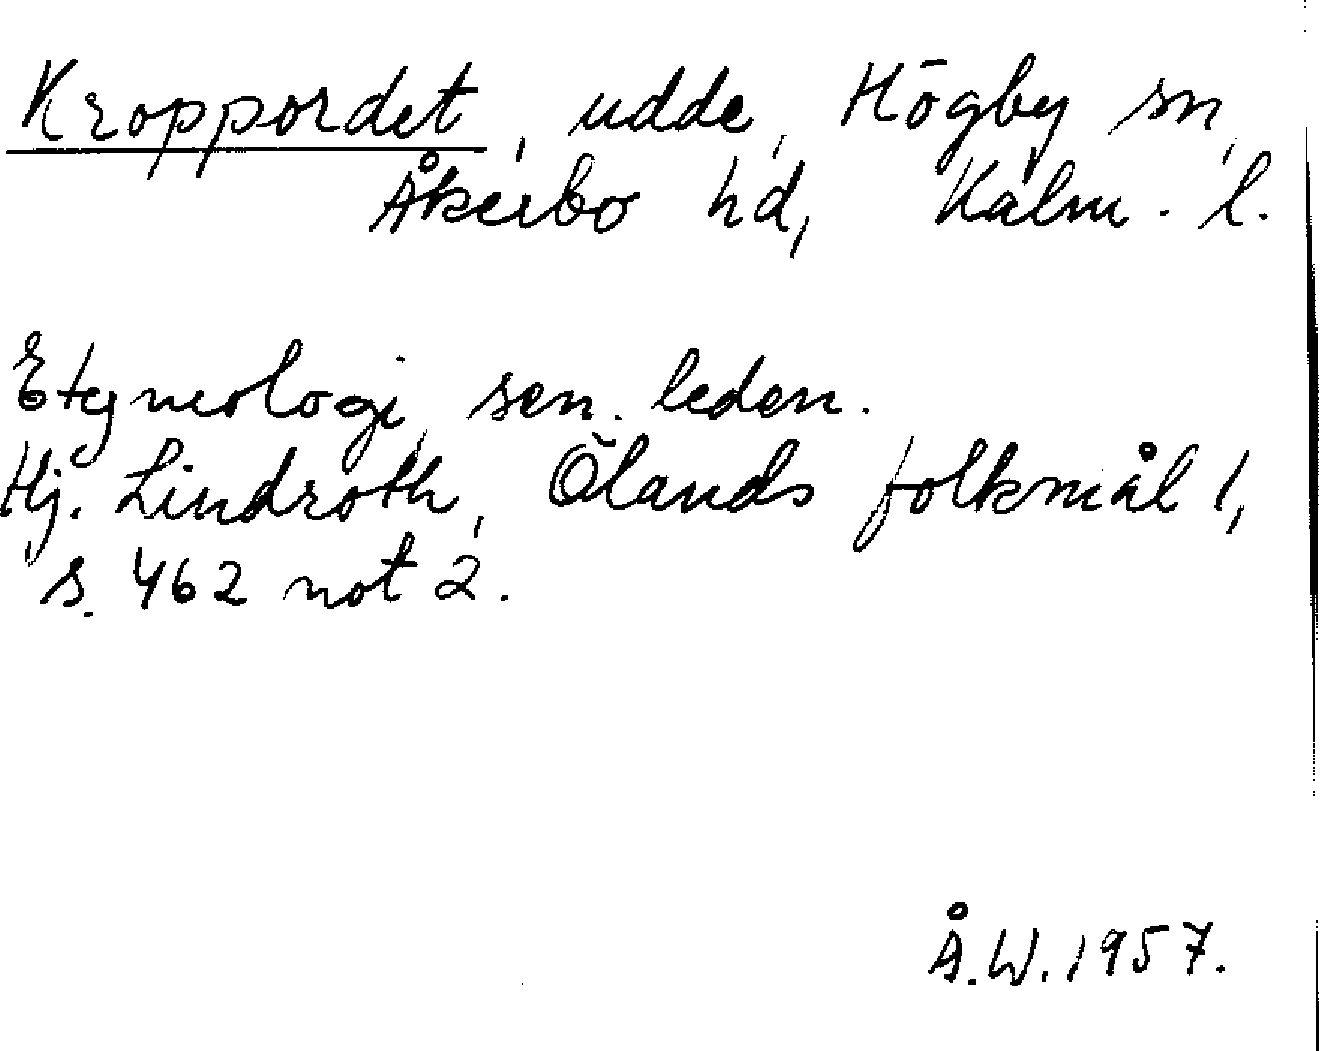 Kroppordet, udde, Högby sn,
Åkerbo hd, Kalm. l.
Etymologi, sen. leden.
Hj. Lindroth, Ölands folkmål 1,
s. 462 not 2.
Å.W. 1957.